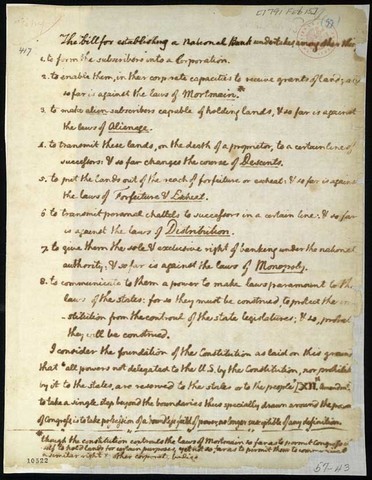 [1791 Feb 15]
417
The Bill for establishing a National Bank undertakes, among other things
1. to form the subscribers into a Corporation.
2. to enable them, in their corporate capacities to receive grants of land; and
so far is against the laws of Mortmain.*
3. to make alien subscribers capable of holding lands, & so far is against
the laws of Alienage.
4. to transmit these lands, on the death of a proprietor, to a certain line of
successors: & so far changes the course of Descents.
5. to put the lands out of the reach of forfeiture or escheat: & so far is against
the laws of Forfeiture & Escheat.
6. to transmit personal chattels to successors in a certain line: & so far
is against the laws of Distribution.
7. to give them the sole & exclusive right of banking under the national
authority; & so far is against the laws of Monopoly.
8. to communicate to them a power to make laws paramount to the
laws of the states: for so they must be construed, to protect the
-stitution from the controul of the state legislatures; & so, probably
they will be construed.
I consider the foundation of the Constitution as laid on this ground
that "all powers not delegated to the U.S. by the Constitution, nor prohibited
by it to the states, are reserved to the states or to the people" [XIIth amendmt.]
to take a single step beyond the boundaries thus specially drawn around the powers
of Congress is to take possession of a boundless feild of power, no longer susceptible of any definition.
* though the constitution controuls the laws of Mortmain so far as to permit Congress
itself to hold lands for certain purposes, yet not so far as to permit them to communicate
a similar right to other corporate bodies.
10522
57-43